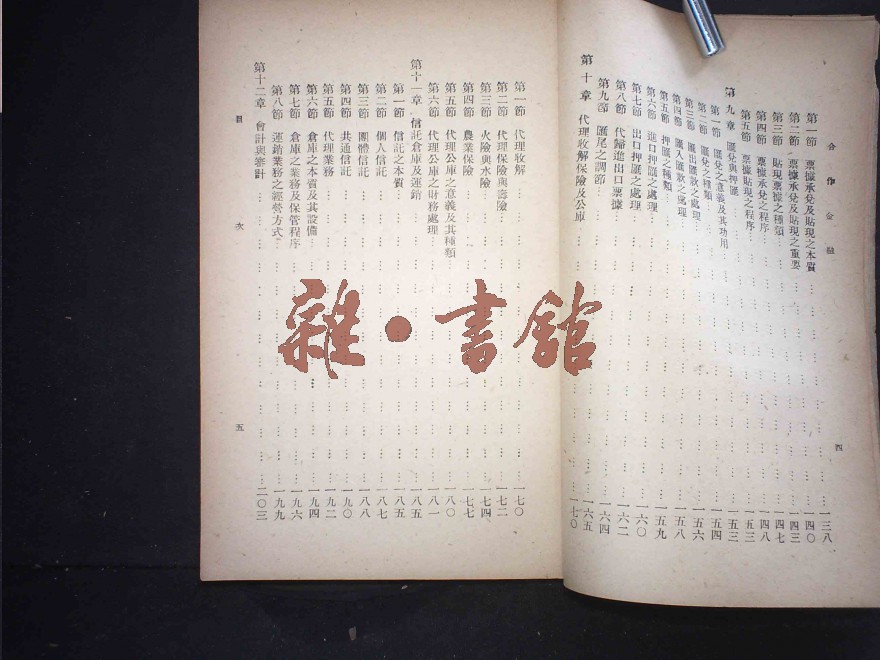 合作金融
第一節 票據承兌及貼現之本質 一三八
第二節 票據承兌及貼現之重要 一四〇
第三節 貼現票據之種類 一四三
第四節 票據承兌之程序 一四七
第五節 票據貼現之程序 一四八
第九章 匯兌與押匯 一五三
第一節 匯兌之意義及其功用 一五三
第二節 匯兌之種類 一五四
第三節 匯出匯款之處理 一五六
第四節 匯入匯款之處理 一五八
第五節 押匯之種類 一五九
第六節 進口押匯之處理 一六〇
第七節 出口押匯之處理 一六二
第八節 代歸進出口票據 一六四
第九節 匯尾之調節 一六五
第十章 代理收解保險及公庫 一七〇
四
第一節 代理收解 一七〇
第二節 代理保險與壽險 一七二
第三節 火險與水險 一七四
第四節 農業保險 一七七
第五節 代理公庫之意義及其種類 一八〇
第六節 代理公庫之財務處理 一八一
第十一章 信託倉庫及運銷 一八五
第一節 信託之本質 一八五
第二節 個人信託 一八七
第三節 團體信託 一八八
第四節 共通信託 一九〇
第五節 代理業務 一九二
第六節 倉庫之本質及其設備 一九四
第七節 倉庫之業務及保管程序 一九六
第八節 運銷業務之經營方式 一九九
第十二章 會計與審計 二〇三
目次
五
雜·書館